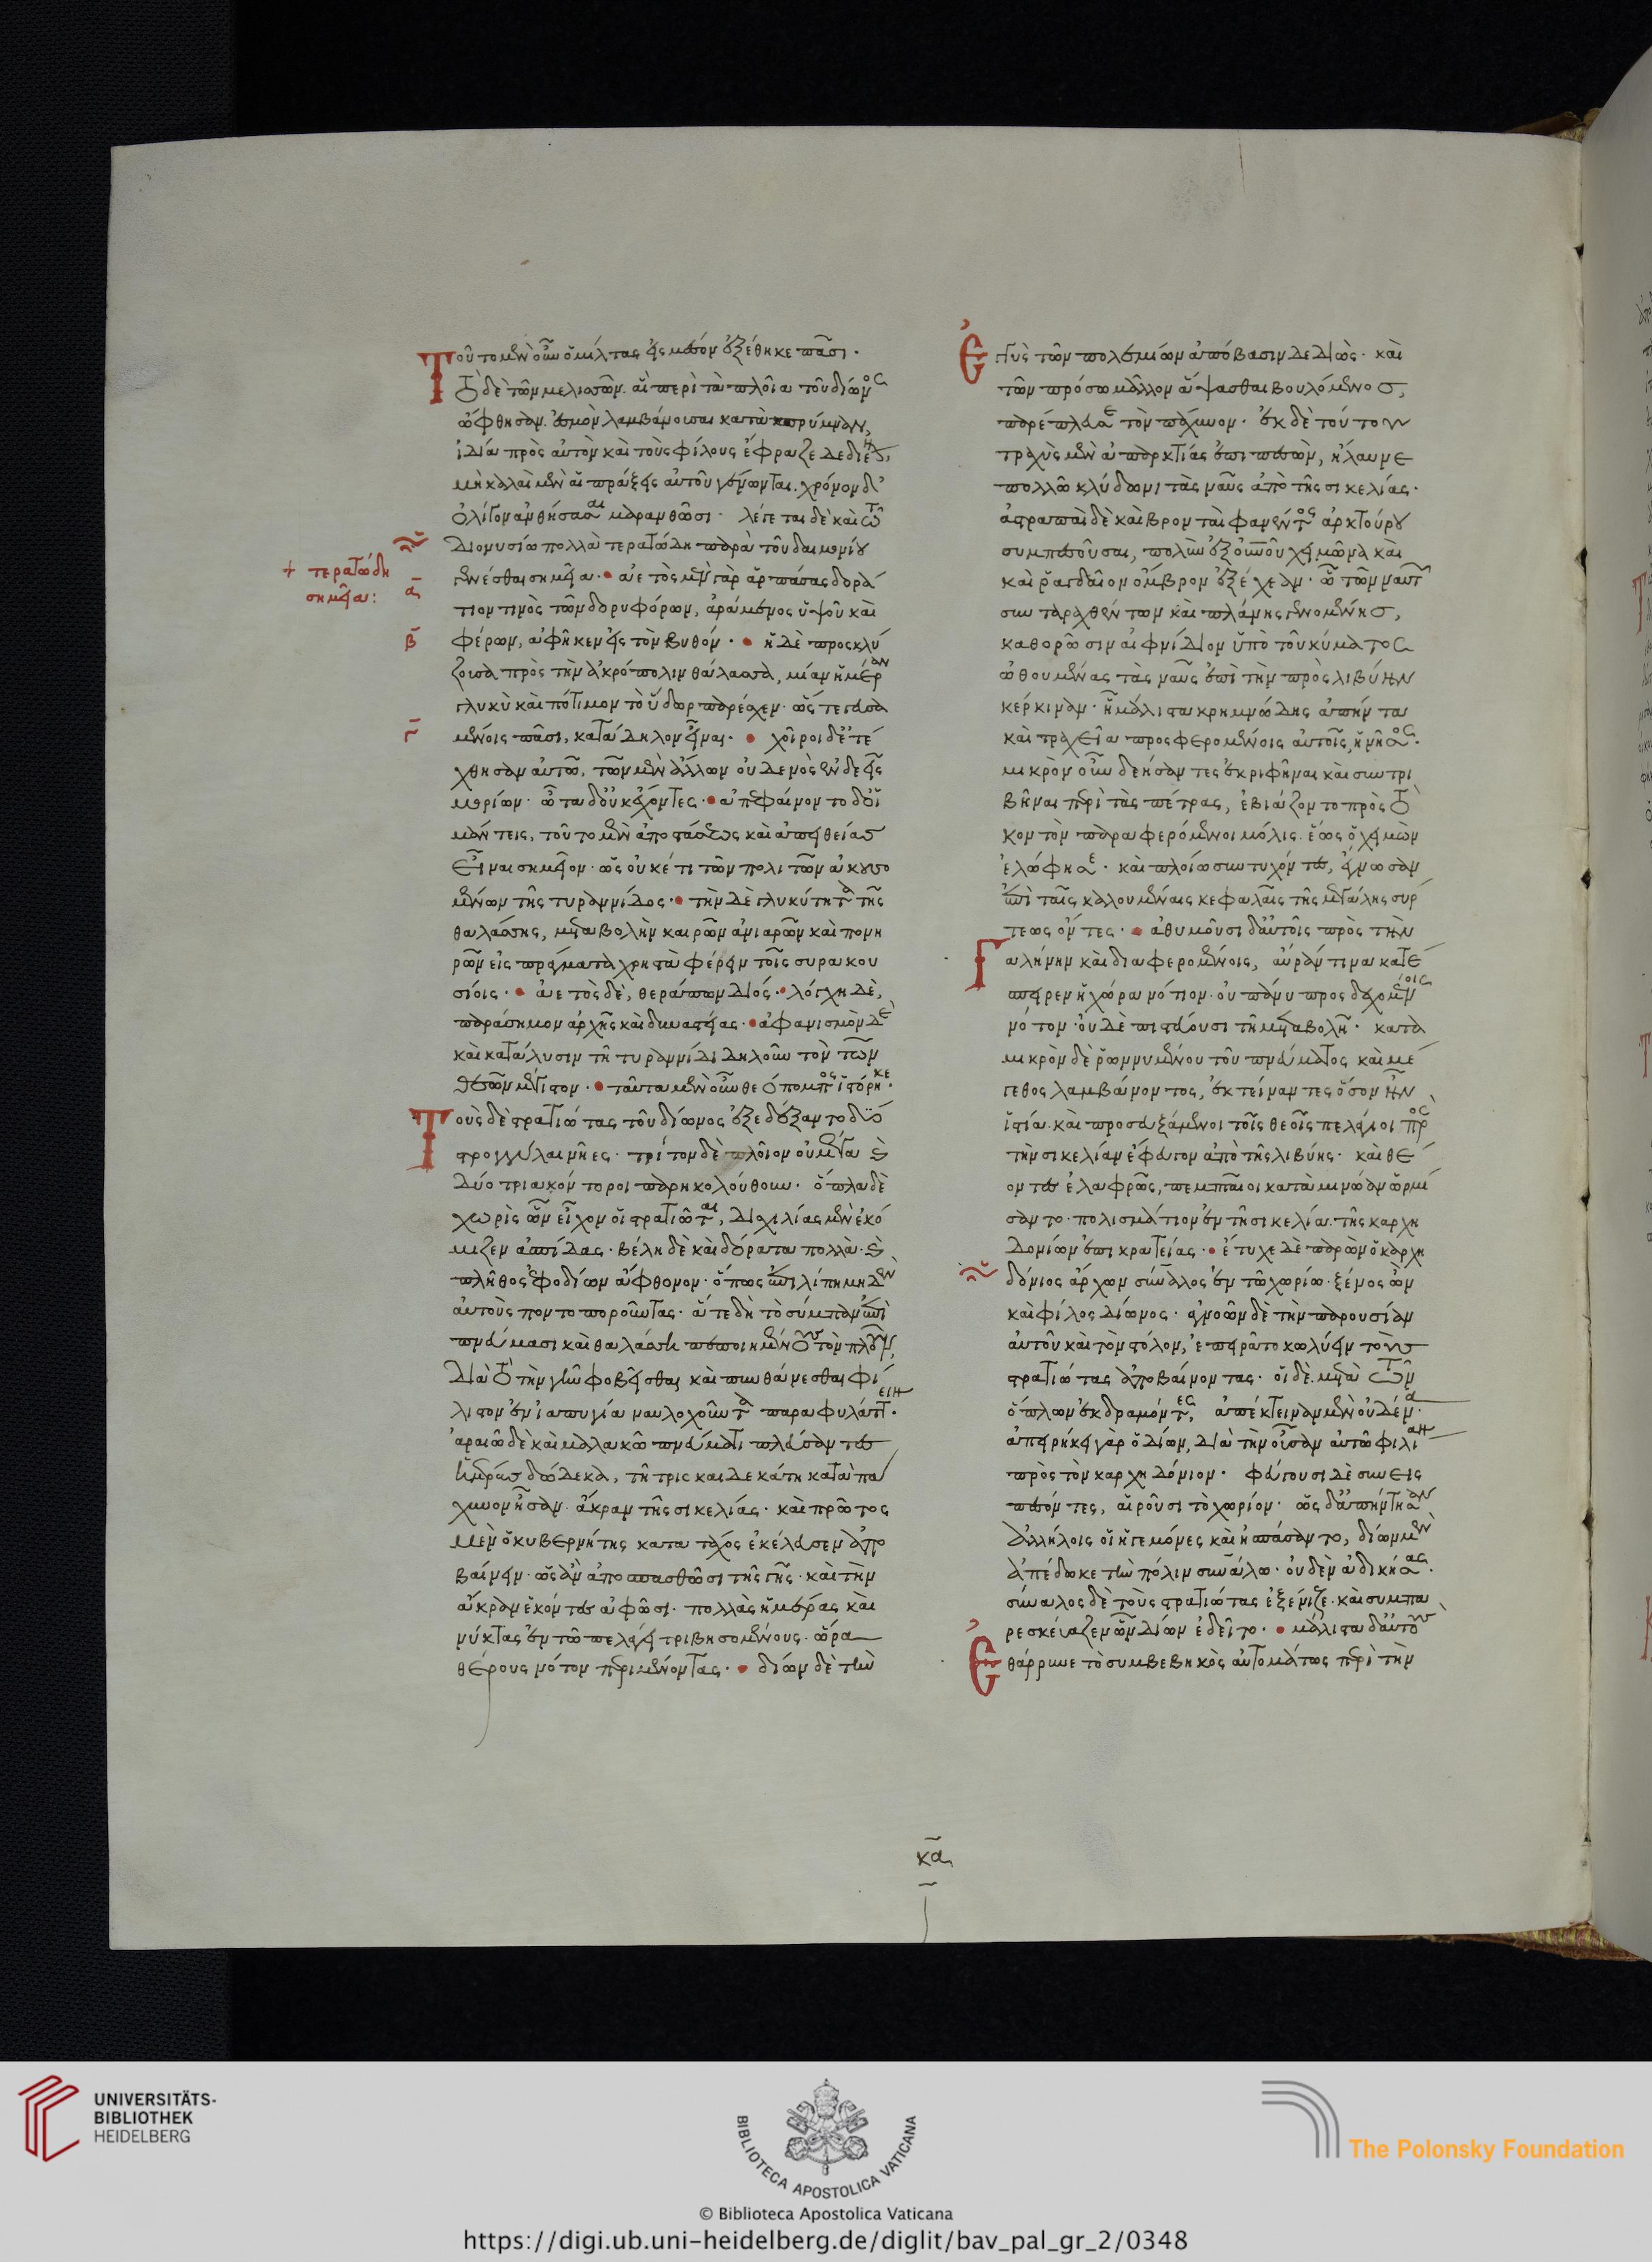 Τοῦτο μὲν οὖν ὁ μίλτας εἰς μέσον ἐξέθηκε πᾶσι·
τὸ δὲ τῶν μελισσῶν. αἳ περὶ τὰ πλοῖα τοῦ δίωνος
ὤφθησαν. ἑσμὸν λαμβάνουσαι κατὰ πρύμναν,
ἰδία πρὸς αὐτὸν καὶ τοὺς φίλους ἔφραζε δεδιέναι,
μὴ καλαὶ μὲν αἱ πράξεις αὐτοῦ γένωνται. χρόνον δ'
ὀλίγον ἀνθήσασαι μαρανθῶσι· λέγεται δὲ καὶ τῶ
Διονυσίω πολλὰ τερατώδη παρὰ τοῦ δαιμονίου
γενέσθαι σημεῖα· ἀετὸς μὲν γὰρ ἁρπάσας δορά
τιον τινὸς τῶν δορυφόρων, ἀράμενος ὑψοῦ καὶ
φέρων, ἀφῆκεν εἰς τὸν βυθόν· ἡ δὲ προσκλύ
ζουσα πρὸς τὴν ἀκρόπολιν θάλασσα, μίαν ἡμέραν
γλυκὺ καὶ πότιμον τὸ ὕδωρ παρέσχεν· ὥστε γευσα
μένοις πᾶσι, κατάδηλον εἶναι· χοῖροι δ' ἐτέ
χθησαν αὐτῶ. τῶν μὲν ἄλλων οὐδενὸς ἐνδεεῖς
μορίων· ὦτα δ' οὐκ ἔχοντες· ἀπεφαίνοντο δ' οἱ
μάντεις, τοῦτο μὲν ἀποστάσεως καὶ ἀπειθείας
εἶναι σημεῖον· ὡς οὐκέτι τῶν πολιτῶν ἀκουσο
μένων τῆς τυραννίδος· τὴν δὲ γλυκύτητα τῆς
θαλάσσης, μεταβολὴν καιρῶν ἀνιαρῶν καὶ πονη
ρῶν εἰς πράγματα χρηστὰ φέρειν τοῖς συρακου
σίοις· ἀετὸς δὲ, θεράπων Διός· λόγχη δὲ,
παράσημον ἀρχῆς καὶ δυναστείας· ἀφανισμὸν δὲ
καὶ κατάλυσιν τῆ τυραννίδι δηλοῦν τὸν τῶν
θεῶν μέγιστον· ταῦτα μὲν οὖν θεόπομπος ἱστόρηκε·
Τοὺς δὲ στρατιώτας τοῦ δίωνος ἐξεδέξαντο δύο
στρογγύλαι νῆες· τρίτον δὲ πλοῖον οὐ μέγα καὶ
δύο τριακόντοροι παρηκολούθουν· ὅπλα δὲ
χωρὶς ὧν εἶχον οἱ στρατιῶται, δισχιλίας μὲν ἐκό
μιζεν ἀσπίδας· βέλη δὲ καὶ δόρατα πολλὰ· καὶ
πλῆθος ἐφοδίων ἄφθονον· ὅπως ἐπιλίπη μηδὲν
αὐτοὺς ποντοποροῦντας· ἅτε δὴ τὸ σύμπαν ἐπὶ
πνεύμασι καὶ θαλάσση πεποιημένους τὸν πλοῦν,
διὰ τὸ τὴν γῆν φοβεῖσθαι καὶ πυνθάνεσθαι φί
λιστον ἐν ἰαπυγία ναυλοχοῦντα παραφυλάττειν·
ἀραιῶ δὲ καὶ μαλακῶ πνεύματι πλεύσαντες
ἡμέρας δώδεκα, τῆ τρισκαιδεκάτη κατὰ πά
χυνον ἦσαν. ἄκραν τῆς σικελίας· καὶ πρῶτος
μὲν ὁ κυβερνήτης κατα τάχος ἐκέλευσεν ἀπο
βαίνειν· ὡς ἂν ἀποσπασθῶσι τῆς γῆς· καὶ τὴν
ἄκραν ἑκόντες ἀφῶσι· πολλὰς ἡμέρας καὶ
νύκτας ἐν τῶ πελάγει τριβησομένους· ὥρα
θέρους νότον περιμένοντας· δίων δὲ τὴν
+ τερατώδη
σημεῖα:
α
β
γ
Ἐγγὺς τῶν πολεμίων ἀπόβασιν δεδιὼς· καὶ
τῶν πρόσω μᾶλλον ἅψασθαι βουλόμενος,
παρέπλευσε τὸν πάχυνον· ἐκ δὲ τούτου
τραχὺς μὲν ἀπαρκτίας ἐπιπεσὼν, ἤλαυνε
πολλῶ κλύδωνι τὰς ναῦς ἀπὸ τῆς σικελίας·
ἀστραπαὶ δὲ καὶ βρονταὶ φανέντος ἀρκτούρου
συμπεσοῦσαι, πολὺν ἐξ οὐρανοῦ χειμῶνα καὶ
καὶ ῥαγδαῖον ὄμβρον ἐξέχεαν· ὧ τῶν ναυτῶν
συνταραχθέντων καὶ πλάνης γενομένης,
καθορῶσιν αἰφνίδιον ὑπὸ τοῦ κύματος
ὠθουμένας τὰς ναῦς ἐπὶ τὴν πρὸς λιβύην
κέρκιναν· ἧ μάλιστα κρημνώδης ἀπήντα
καὶ τραχεῖα προσφερομένοις αὐτοῖς, ἡ νῆσος·
μικρὸν οὖν δεήσαντες ἐκριφῆναι καὶ συντρι
βῆναι περὶ τὰς πέτρας, ἐβιάζοντο πρὸς τὸ
κον τὸν παραφερόμενοι μόλις. ἕως ὁ χειμὼν
ἐλώφησε· καὶ πλοίω συντυχόντες, ἔγνωσαν
ἐπὶ ταῖς καλουμέναις κεφαλαῖς τῆς μεγάλης σύρ
τεως ὄντες· ἀθυμοῦσι δ' αὐτοῖς πρὸς τὴν
Γαλήνην καὶ διαφερομένοις, αὔραν τινα κατέ
σπειρεν ἡ χώρα νότιον· οὐ πάνυ προσδεχομένοις
νότον· οὐδὲ πιστεύουσι τῆ μεταβολῆ· κατὰ
μικρὸν δὲ ῥωννυμένου τοῦ πνεύματος καὶ μέ
γεθος λαμβάνοντος, ἐκτείναντες ὅσον ἦν
ἱστία· καὶ προσευξάμενοι τοῖς θεοῖς πελάγιοι πρὸς
τὴν σικελίαν ἔφευγον ἀπὸ τῆς λιβύης· καὶ θέ
οντες ἐλαφρῶς, πεμπταῖοι κατὰ μινώαν ὡρμί
σαντο· πολισμάτιον ἐν τῆ σικελία. τῆς καρχη
δονίων ἐπικρατείας· ἔτυχε δὲ παρὼν ὁ καρχη
δόνιος ἄρχων σύναλος ἐν τῶ χωρίω· ξένος ὢν
καὶ φίλος δίωνος· ἀγνοῶν δὲ τὴν παρουσίαν
αὐτοῦ καὶ τὸν στόλον, ἐπειρᾶτο κωλύειν τοὺς
στρατιώτας ἀποβαίνοντας· οἱ δὲ. μετὰ τῶν
ὅπλων ἐκδραμόντες, ἀπέκτειναν μὲν οὐδένα·
ἀπειρήκει γὰρ ὁ δίων, διὰ τὴν οὖσαν αὐτῶ φιλίαν
πρὸς τὸν καρχηδόνιον· φεύγουσι δὲ συνεις
πεσόντες, αἱροῦσι τὸ χωρίον· ὡς δ' ἀπήντησαν
ἀλλήλοις οἱ ἡγεμόνες καὶ ἠσπάσαντο, δίων μὲν
ἀπέδωκε τὴν πόλιν συνάλω· οὐδὲν ἀδικήσας·
σύναλος δὲ τοὺς στρατιώτας ἐξένιζε. καὶ συμπα
ρεσκεύαζεν ὧν δίων ἐδεῖτο· μάλιστα δ' αὐτοὺς
Ἐθάρρυνε τὸ συμβεβηκὸς αὐτομάτως περὶ τὴν
κα
UNIVERSITÄTS-
BIBLIOTHEK
HEIDELBERG
BIBLIOTECA APOSTOLICA VATICANA
The Polonsky Foundation
© Biblioteca Apostolica Vaticana
https://digi.ub.uni-heidelberg.de/diglit/bav_pal_gr_2/0348